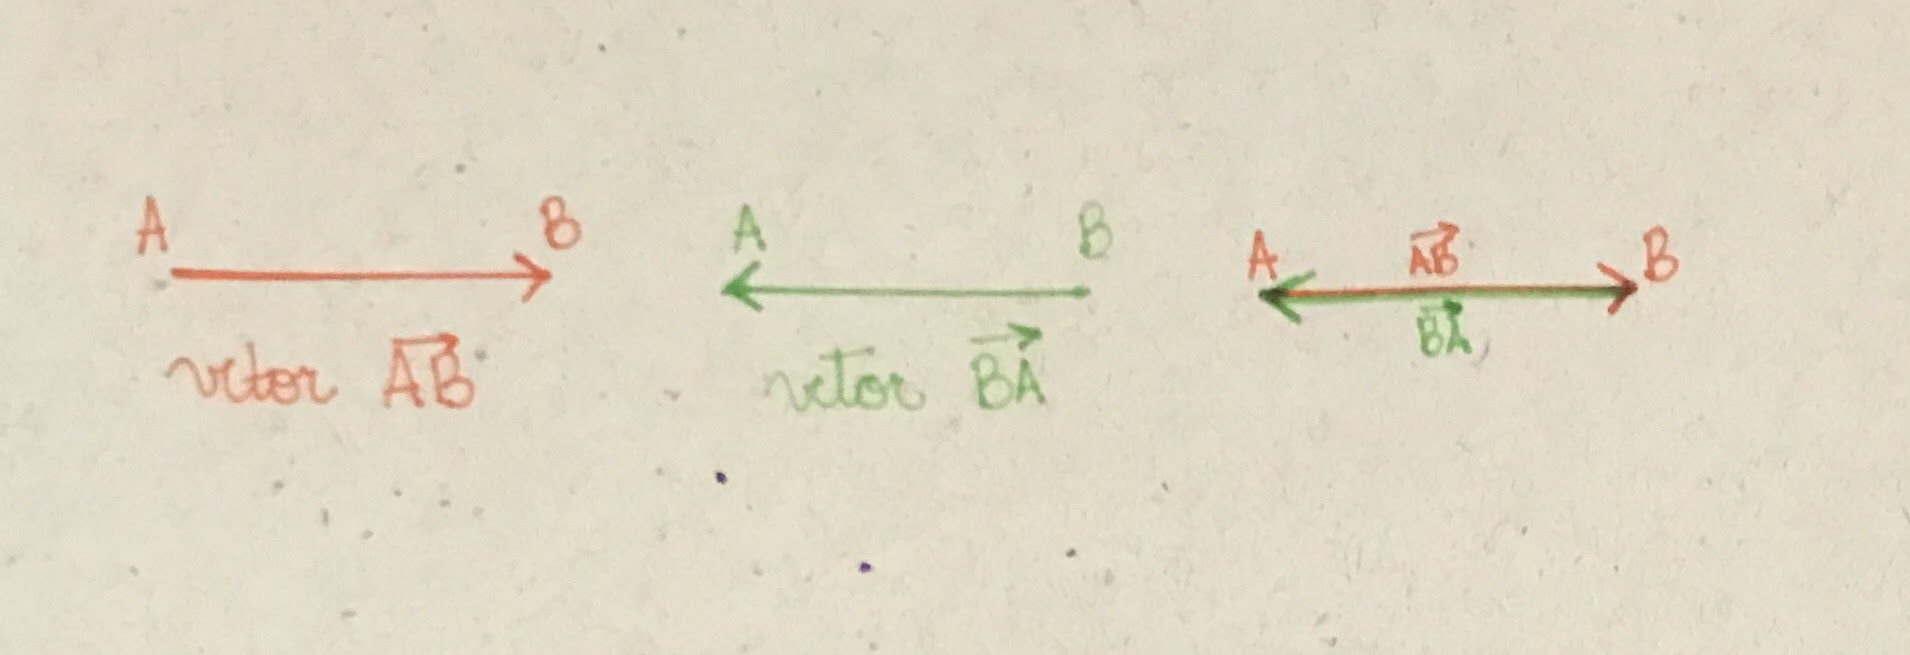 A B
vetor AB
A B
vetor BA
A AB B
BA